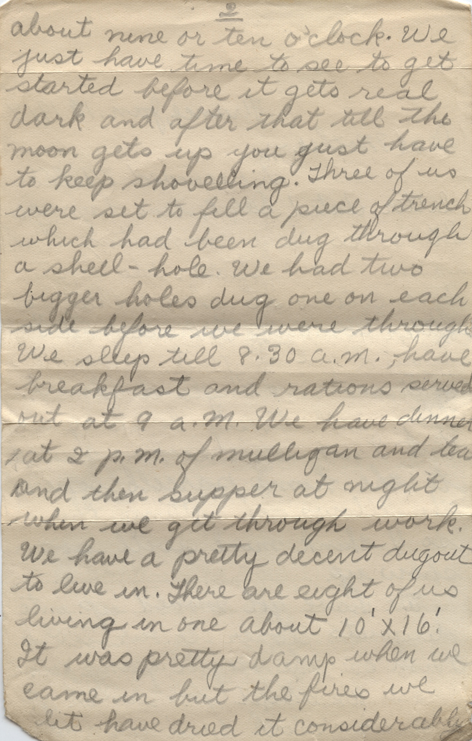 2
about nine or ten o'clock. We
just have time to see to get
started before it gets real
dark and after that till the
moon gets up you just have
to keep shovelling. Three of us
were set to fill a piece of trench
which had been dug through
a shell-hole. We had two
bigger holes dug one on each
side before we were through
We sleep till 8.30 a.m., have
breakfast and rations served
out at 9 a.m. We have dinner
at 2 p.m. of mulligan and tea
and then supper at night
when we get through work.
We have a pretty decent dugout
to live in. There are eight of us
living in one about 10'X16'.
It was pretty damp when we
came in but the fires we
lit have dried it considerably